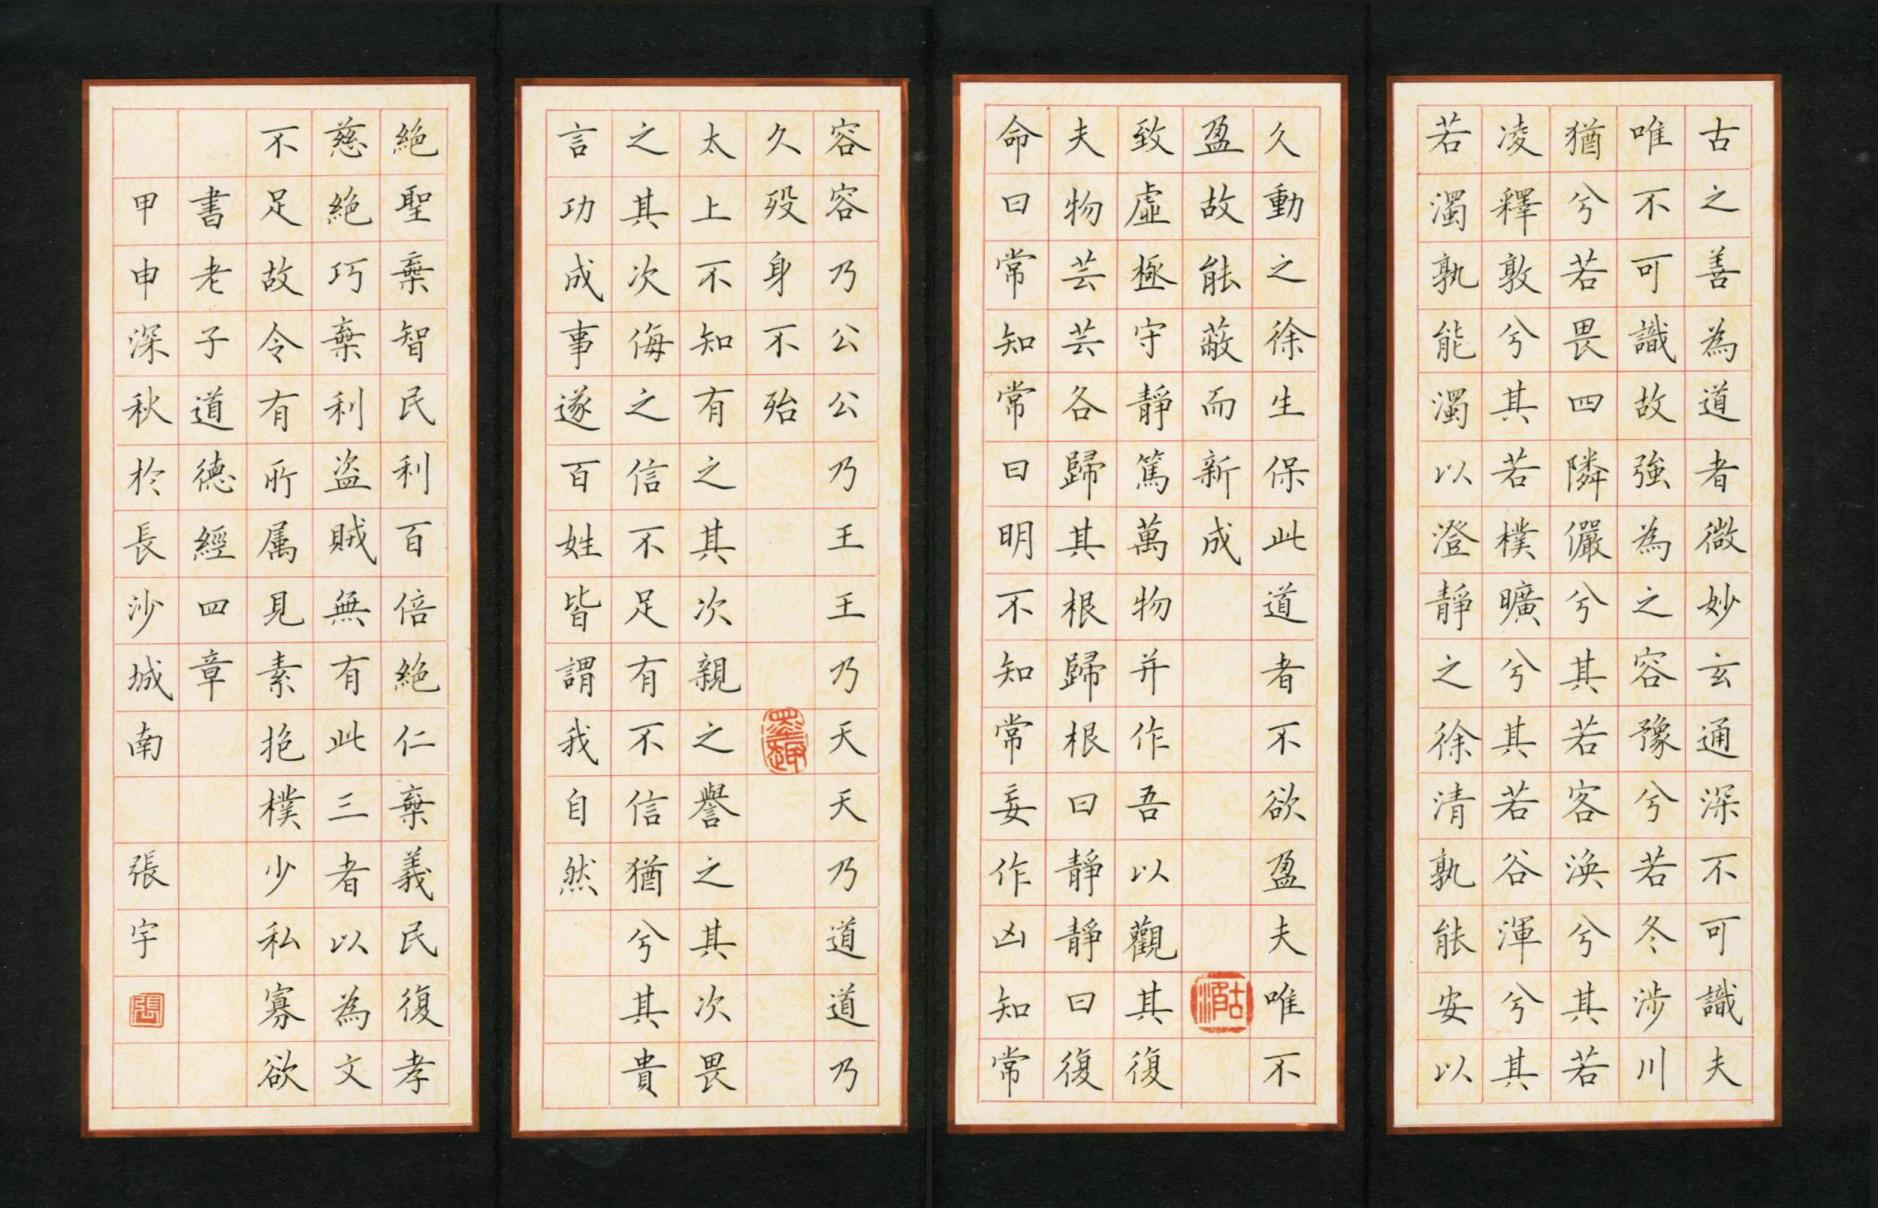 古之善為道者微妙玄通深不可識夫
唯不可識故強為之容豫兮若冬涉川
猶兮若畏四隣儼兮其若客渙兮其若
凌釋敦兮其若樸曠兮其若谷渾兮其
若濁孰能濁以澄靜之徐清孰能安以
久動之徐生保此道者不欲盈夫唯不
盈故能蔽而新成
致虛極守靜篤萬物并作吾以觀其復
夫物芸芸各歸其根歸根曰靜靜曰復
命曰常知常曰明不知常妄作凶知常
容容乃公公乃王王乃天天乃道道乃
久歿身不殆
太上不知有之其次親之譽之其次畏
之其次侮之信不足有不信猶兮其貴
言功成事遂百姓皆謂我自然
絕聖棄智民利百倍絕仁棄義民復孝
慈絕巧棄利盜賊無有此三者以為文
不足故令有所属見素抱樸少私寡欲
書老子道德經四章
甲申深秋於長沙城南 張宇
張